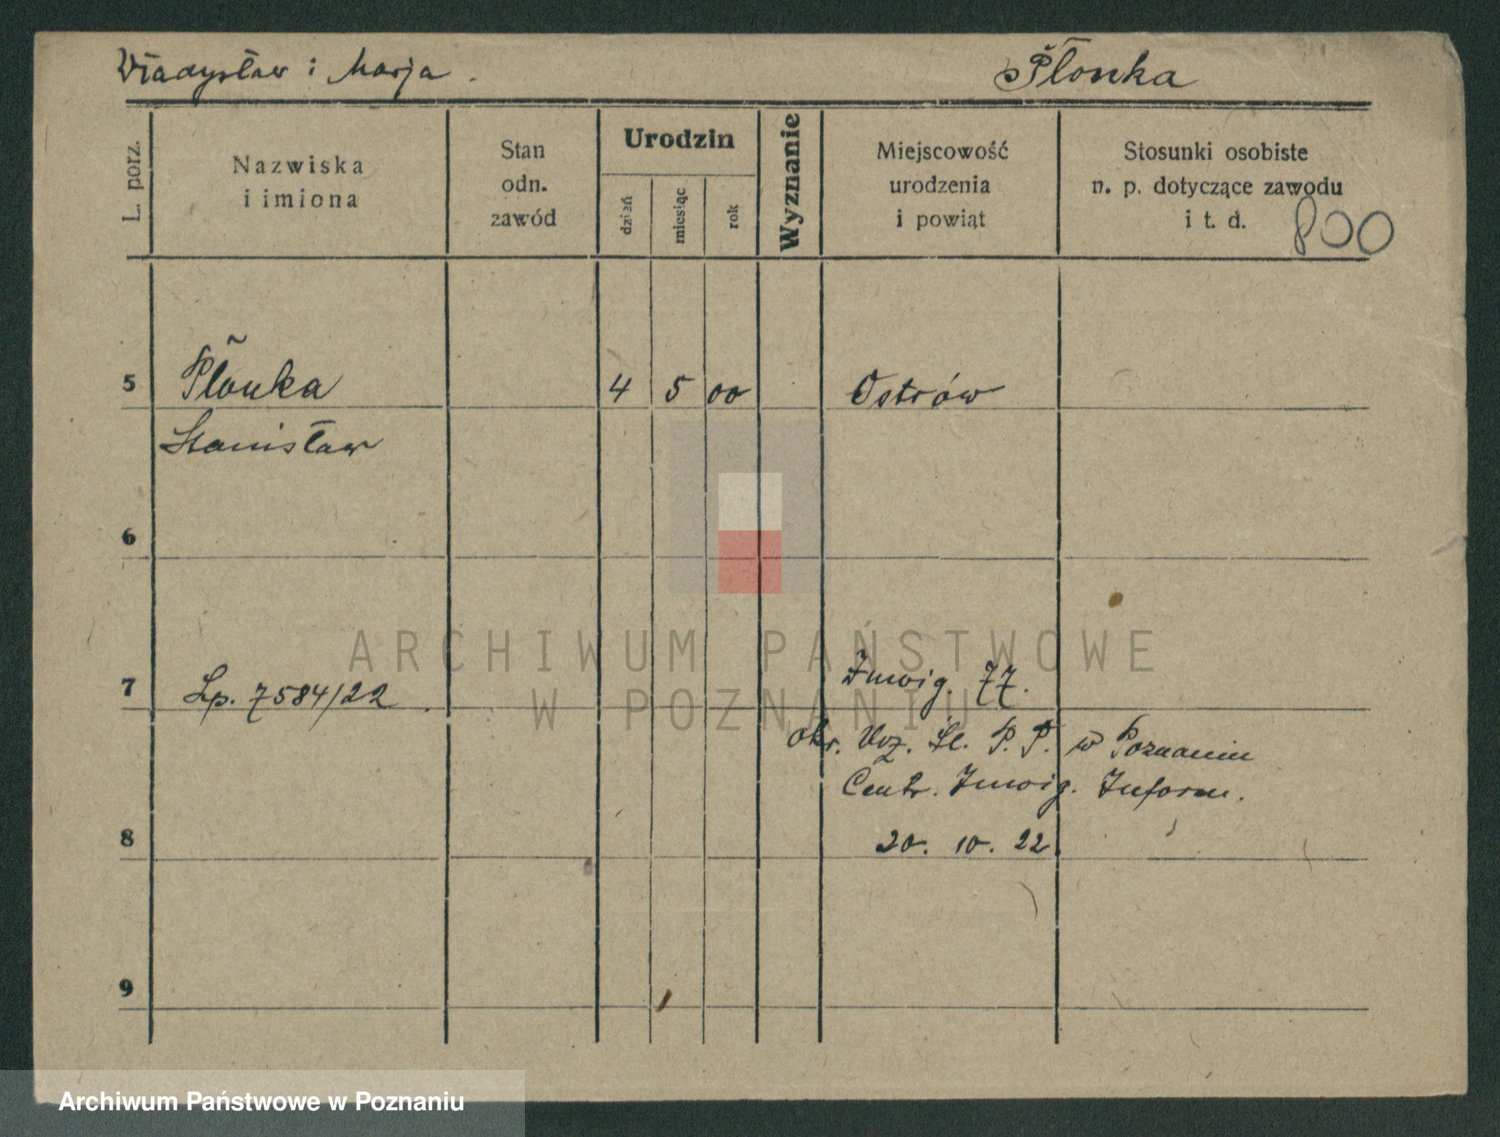 Władysław i Marja.
Płonka
L. porz.
Nazwiska
i imiona
Stan
odn.
zawód
Urodzin
dzień
miesiąc
rok
Wyznanie
Miejscowość
urodzenia
i powiąt
Stosunki osobiste
n. p. dotyczące zawodu
i t. d.
800
5 Płonka 4 5 00 Ostrów
Stanisław
6
7 Lp. 7584/22 Inwig. 77.
Okr. Urz. Śl. P. P. w Poznaniu
Centr. Inwig. Inform.
8 20. 10. 22
9
ARCHIWUM PAŃSTWOWE
W POZNANIU
Archiwum Państwowe w Poznaniu